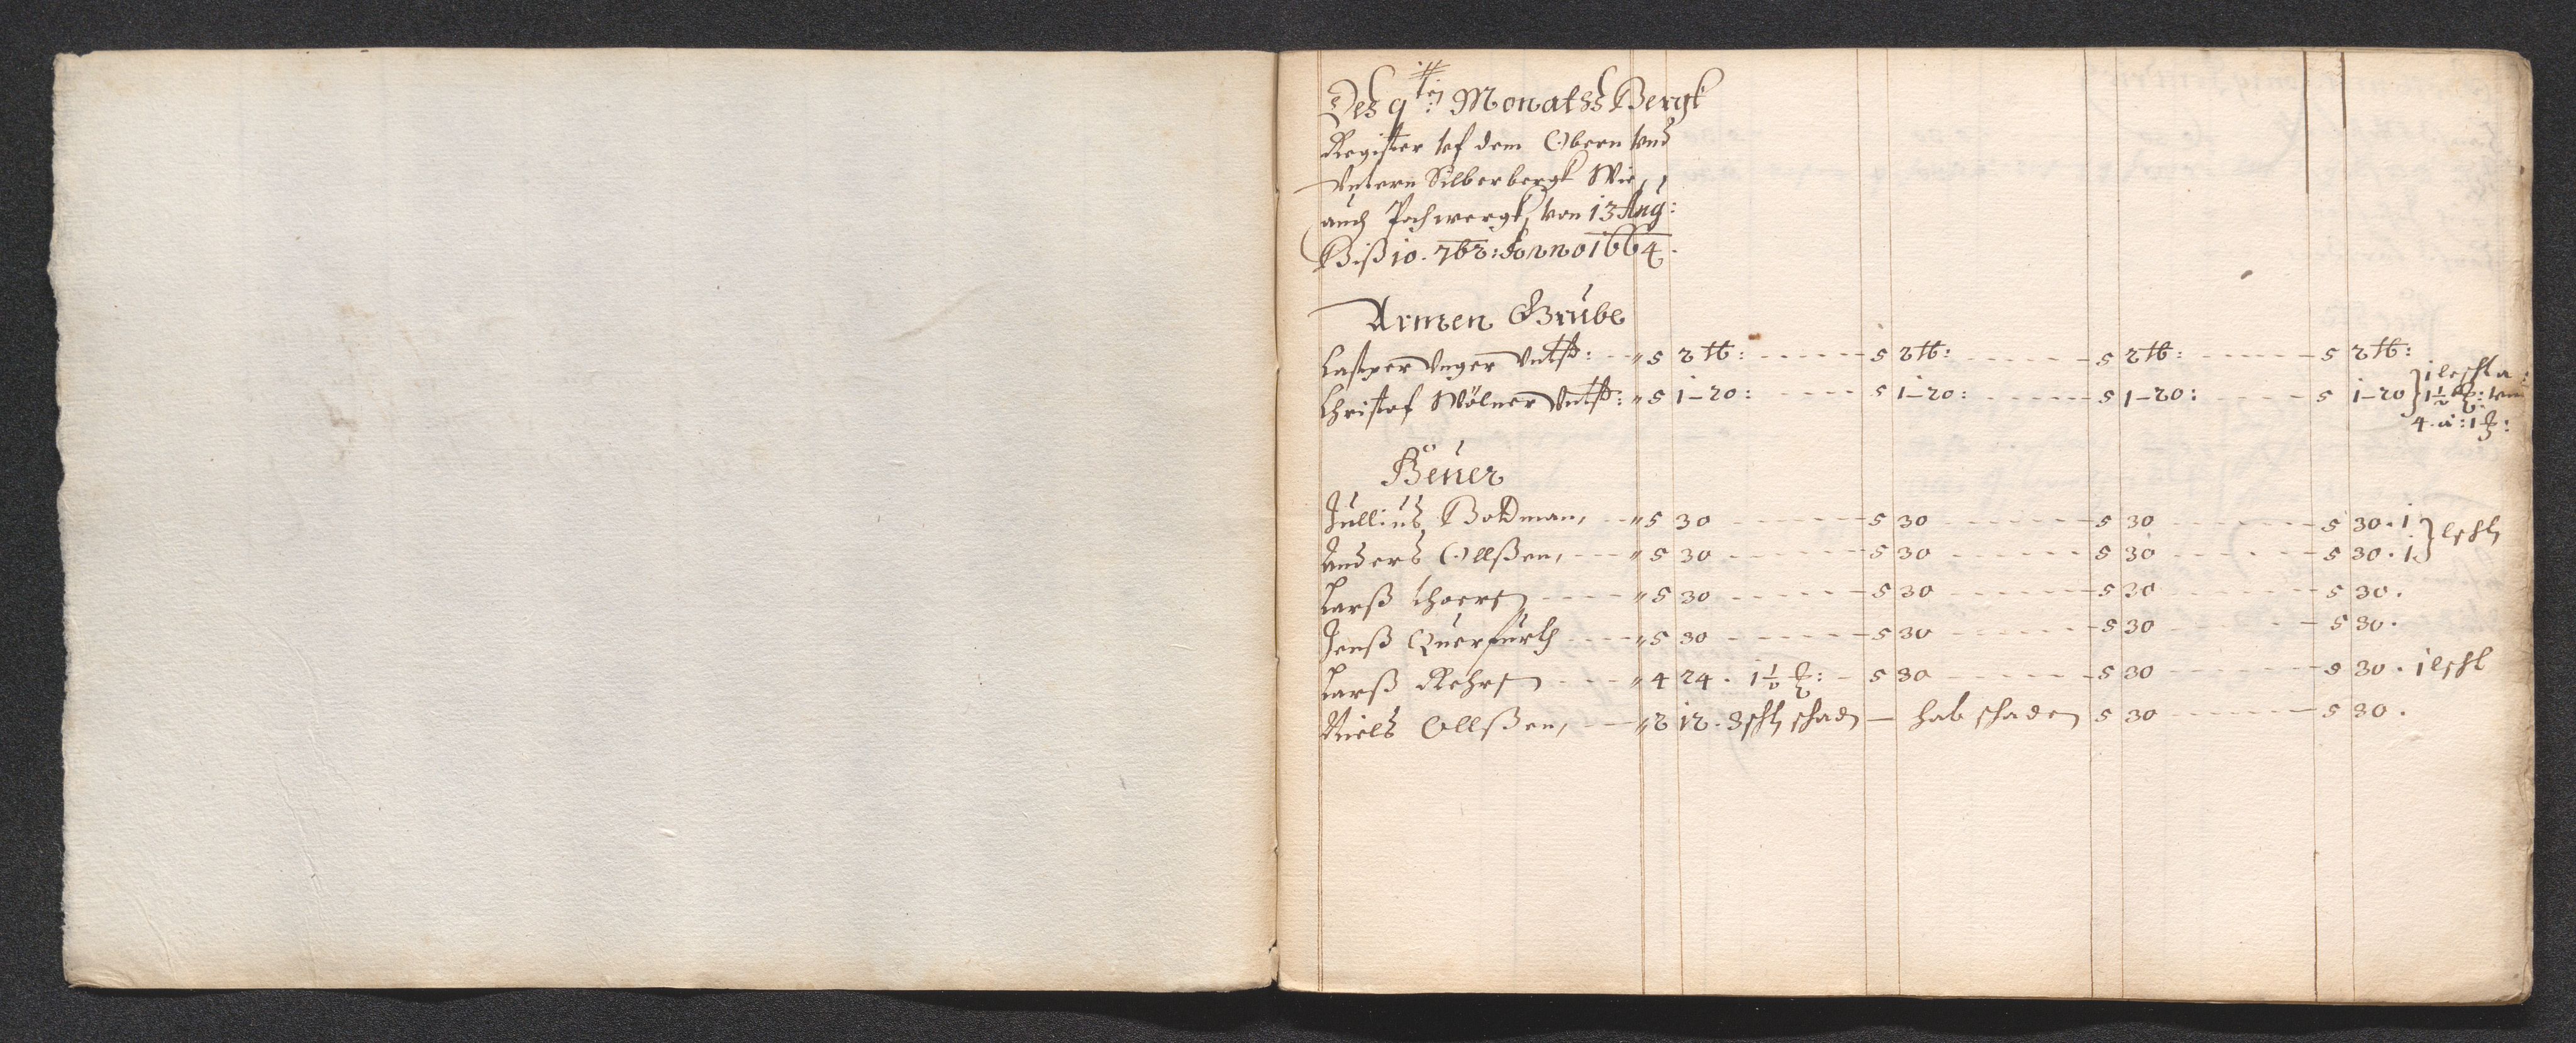 Des 9ten Monatss Bergk
Register uf dem Obern und
Untern Silberbergk Wie,
auch Pochwergk, von 13 Aug:
Biß 10. 7br: Anno 1664.
Armen Grube
Casper Unger - - " 5 2 - - - 5 2 - - - 5 2 - - - 5 2
Christof Wölner " 5 1-20: - - - 5 1-20: - - - 5 1-20: - - - 5 1-20 }
4. a: 1
Böuer
Jullius Boldman, - - " 5 30 - - - 5 30 - - - 5 30 - - - 5 30. 1 }
Anders Ollßen, - - - " 5 30 - - - 5 30 - - - 5 30 - - - 5 30. 1 }
Larß - - - " 5 30 - - - 5 30 - - - 5 30 - - - 5 30.
Jenß Querfurth - - - " 5 30 - - - 5 30 - - - 5 30 - - - 5 30.
Larß - - - " 4 24. 1½ - 5 30 - - - 5 30 - - - 5 30. 1
Niels Ollßen, - - " 2 12. 3 schaden — hab schaden 5 30 - - - 5 30.